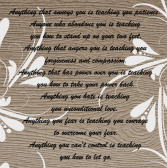 Anything that annoys you is teaching you patience.
Anyone who abandons you is teaching
you how to stand up on your two feet.
Anything that angers you is teaching you
forgiveness and compassion.
Anything that has power over you is teaching
you how to take your power back.
Anything you hate is teaching
you unconditional love.
Anything you fear is teaching you courage
to overcome your fear.
Anything you can't control is teaching
you how to let go.